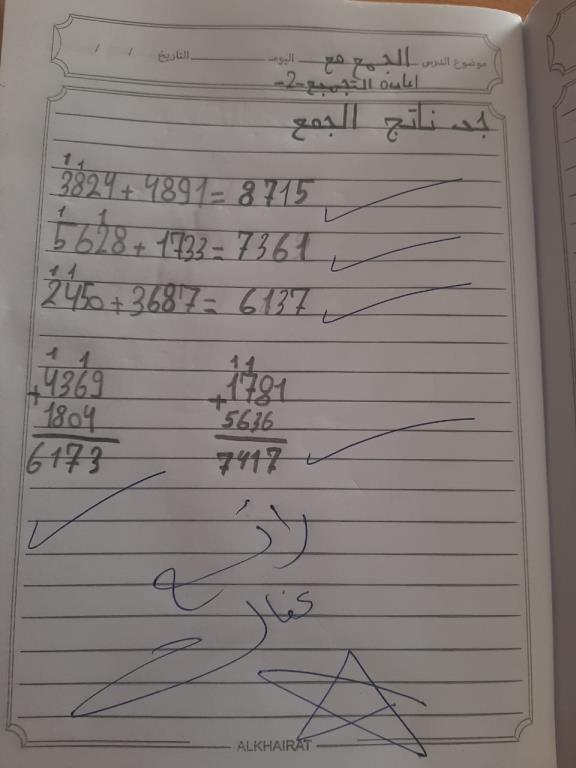 موضوع الدرس الجمع مع اليوم التاريخ / /
اعادة التجميع -2-
جد ناتج الجمع
1 1
3824 + 4891 = 8715
1 1
5628 + 1733 = 7361
1 1
2450 + 3687 = 6137
1 1
+ 4369
1804
6173
1 1
+ 1781
5636
7417
ALKHAIRAT